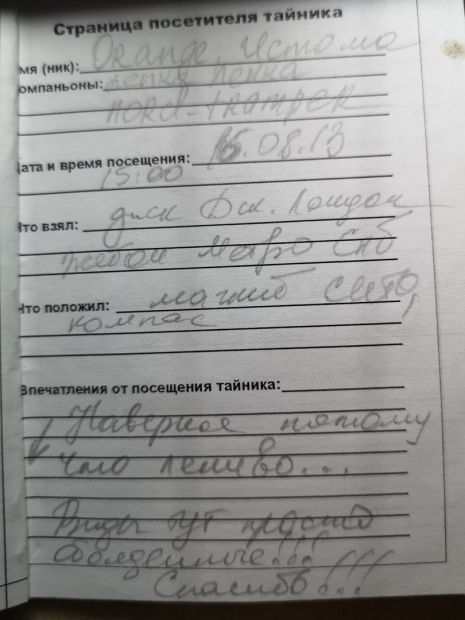 Страница посетителя тайника
мя (ник): Orange, Истома
омпаньоны: Ленка
nord-
ата и время посещения: 15.08.13
15:00
то взял: диск Дж. Лондон
жетон метро Спб
то положил: магнит
компас
Впечатления от посещения тайника:
Наверное потому
что лениво...
Виды тут просто
обалденные!!!
Спасибо!!!